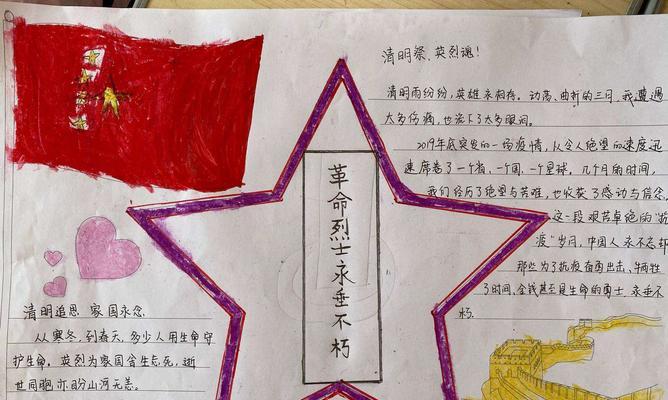 清明祭,英烈魂!
清明雨纷纷,英雄永相存。动荡、曲折的三月,我遭遇
太多伤痛,也流下了太多眼泪。
2019年底突发的一场疫情,从令人绝望的速度迅
速席卷了一个省、一个国、一个星球。几个月的时间,
我们经历了绝望与苦难,也收获了感动与信念,
这一段艰苦卓绝的"抗
疫"岁月,中国人永不忘却
那些为了抗疫奋勇出击、牺牲
了时间、金钱甚至是生命的勇士,永垂不
朽.
革命烈士永垂不朽
清明追思 家国永念
从寒冬,到春天,多少人用生命守
护生命。英烈为家国舍生忘死,逝
世同胞亦盼山河无恙。